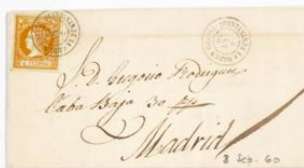 S. D. Gregorio Rodriguez
Caba Baja 30 pp
Madrid
8 Sep. 60